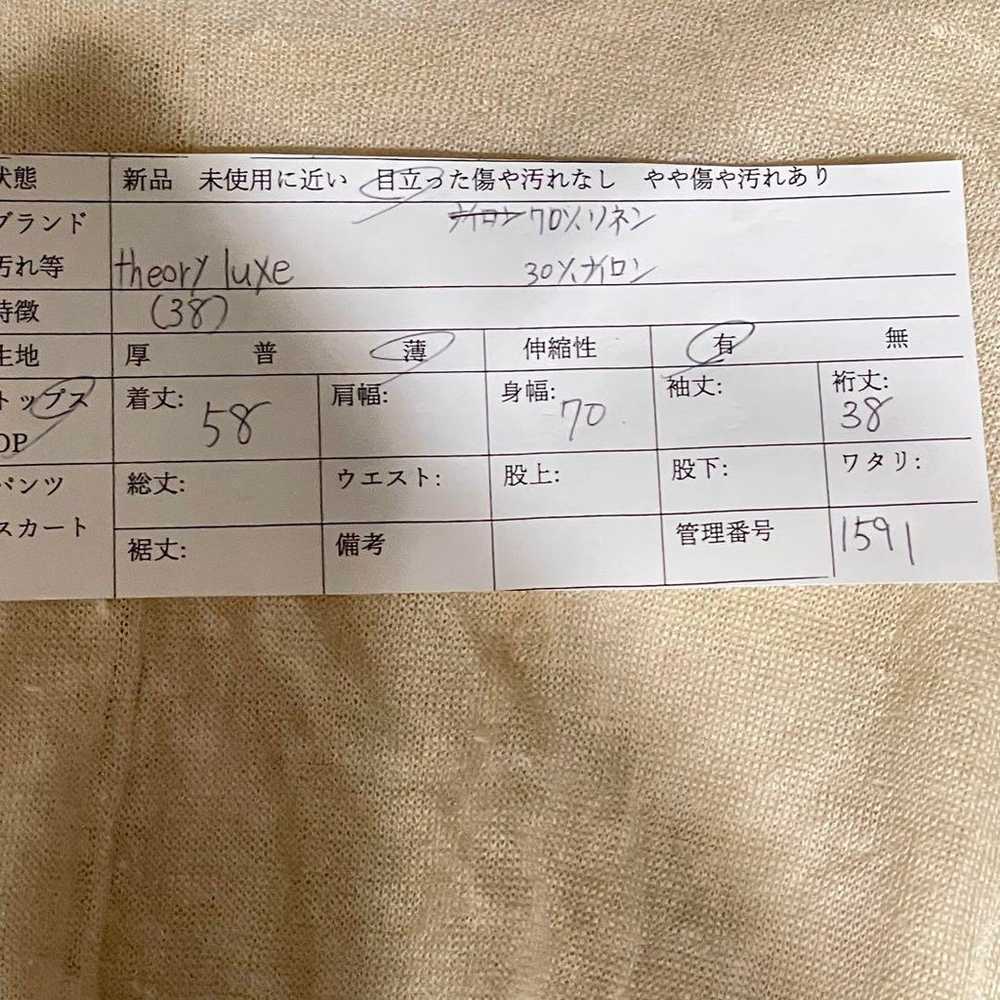 状態 新品 未使用に近い 目立った傷や汚れなし やや傷や汚れあり
ブランド ナイロン 70%リネン
汚れ等 theory luxe 30%ナイロン
特徴 (38)
生地 厚 普 薄 伸縮性 有 無
トップス 着丈: 58 肩幅: 身幅: 70 袖丈: 裄丈: 38
OP
パンツ 総丈: ウエスト: 股上: 股下: ワタリ:
スカート 裾丈: 備考 管理番号 1591